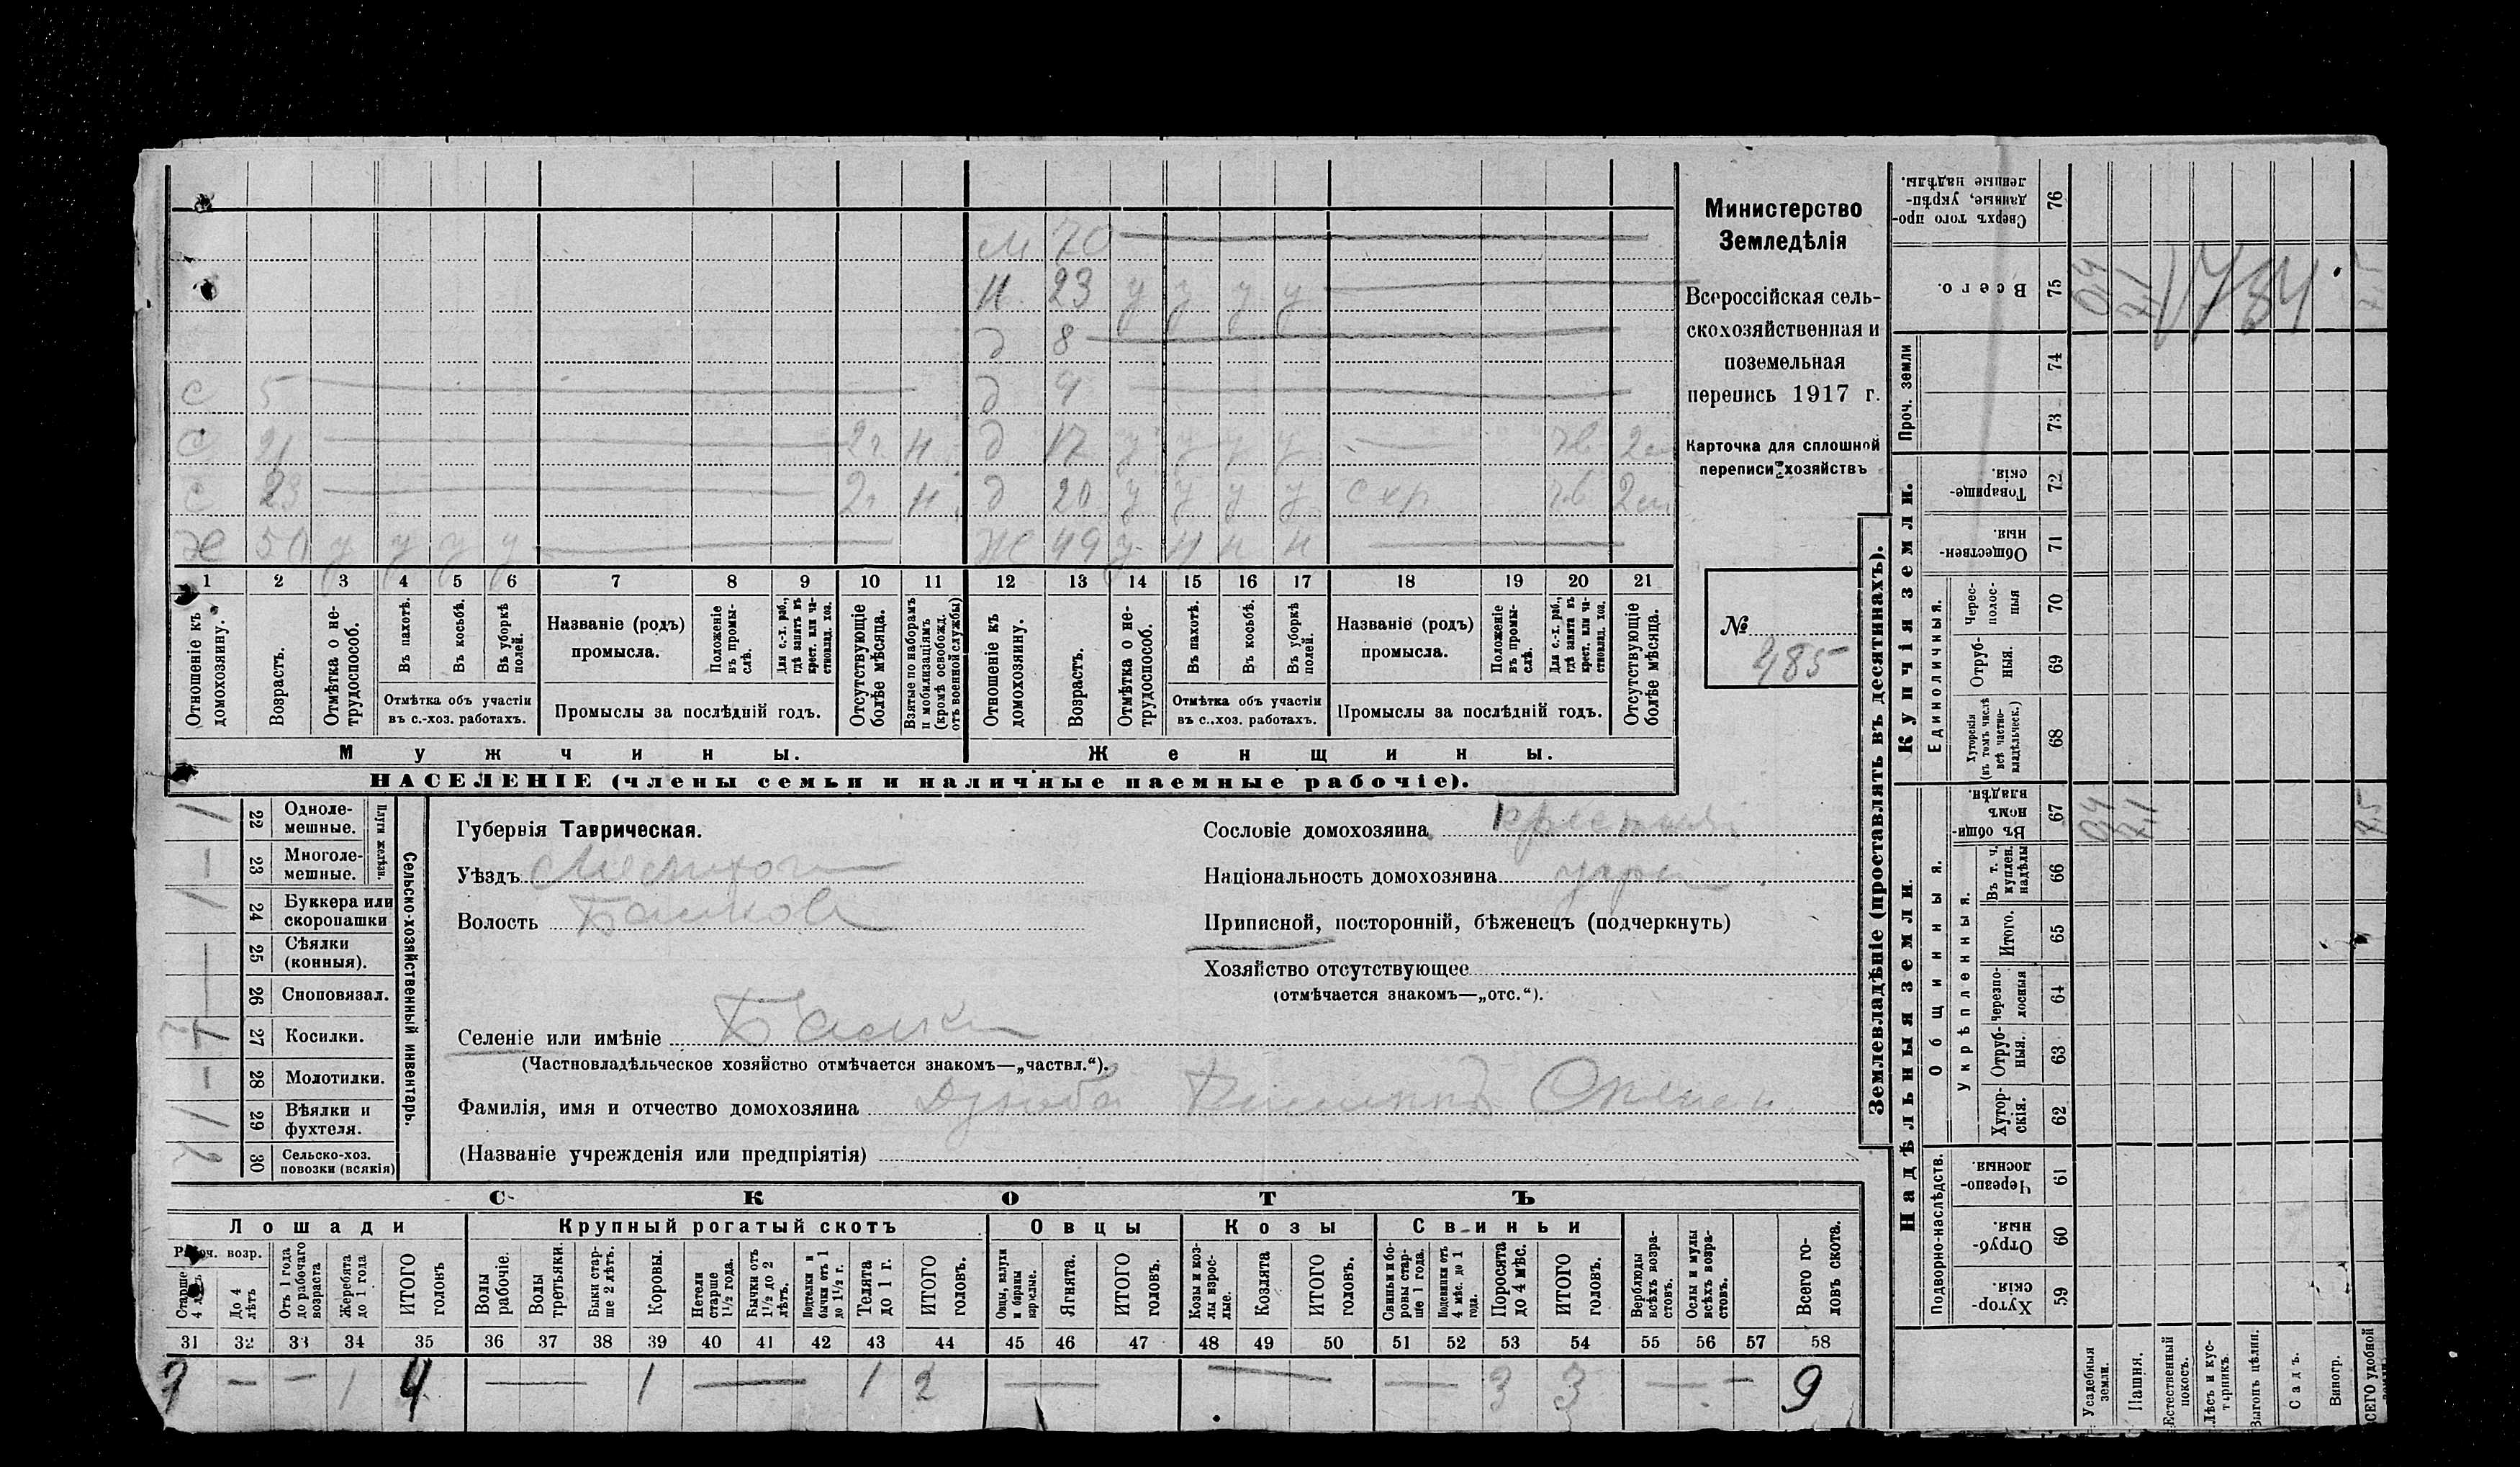 м 70
н 23 у у у у
д 8
с 5 д 4
с 21 2г. н д 17 у у у у 2
с 23 2г н д 20 у у у у схр 2
Ж 50 у у у у Ж 49 у н н н
1 2 3 4 5 6 7 8 9 10 11 12 13 14 15 16 17 18 19 20 21
Отношеніе къ домохозяину.
Возрастъ.
Отмѣтка о не-трудоспособ.
Въ пахотѣ.
Въ косьбѣ.
Въ уборкѣ полей.
Отмѣтка объ участіи въ с.-хоз. работахъ.
Названіе (родъ) промысла.
Положеніе въ промы-слѣ.
Для с.-х. раб., гдѣ занятъ въ крест. или ча-ствовлад. хоз.
Промыслы за послѣдній годъ.
Отсутствующіе болѣе мѣсяца.
Взятые по наборамъ и мобилизаціямъ (кромѣ освобожд. отъ военной службы)
Отношеніе къ домохозяину.
Возрастъ.
Отмѣтка о не-трудоспособ.
Въ пахотѣ.
Въ косьбѣ.
Въ уборкѣ полей.
Отмѣтка объ участіи въ с..хоз. работахъ.
Названіе (родъ) промысла.
Положеніе въ промы-слѣ.
Для с.-х. раб., гдѣ занята въ крест. или ча-ствовлад. хоз.
Промыслы за послѣдній годъ.
Отсутствующіе болѣе мѣсяца.
Мужчины.
Женщины.
НАСЕЛЕНІЕ (члены семьи и наличные наемные рабочіе).
Министерство
Земледѣлія
Всероссійская сель-
скохозяйственная и
поземельная
перепись 1917 г.
Карточка для сплошной
переписи хозяйствъ
№
485
1 22 Одноле-мешные.
— 23 Многоле-мешные.
Плуги желѣзн.
1 24 Буккера или скоропашки
25 Сѣялки (конныя).
26 Сноповязал.
27 Косилки.
— 28 Молотилки.
1 29 Вѣялки и фухтеля.
30 Сельско-хоз. повозки (всякія)
Сельско-хозяйственный инвентарь.
Губернія Таврическая.
Уѣздъ Мелитоп
Волость Балков
Селеніе или имѣніе Балки
(Частновладѣльческое хозяйство отмѣчается знакомъ—„частвл.“).
Фамилія, имя и отчество домохозяина
(Названіе учрежденія или предпріятія)
Сословіе домохозяина
Національность домохозяина укра
Приписной, посторонній, бѣженецъ (подчеркнуть)
Хозяйство отсутствующее
(отмѣчается знакомъ—„отс.“).
СКОТЪ
Лошади
Крупный рогатый скотъ
Овцы
Козы
Свиньи
Рабоч. возр.
Старше 4 лѣтъ
До 4 лѣтъ
Отъ 1 года до рабочаго возраста
Жеребята до 1 года
ИТОГО головъ
Волы рабочіе.
Волы третьяки.
Быки стар-ше 2 лѣтъ.
Коровы.
Нетели старше 1½ года.
Бычки отъ 1½ до 2 лѣтъ.
Подтелки и бычки отъ 1 до 1½ г.
Телята до 1 г.
ИТОГО головъ.
Овцы, валухи и бараны взрослые.
Ягнята.
ИТОГО головъ.
Козы и коз-лы взрос-лые.
Козлята
ИТОГО головъ.
Свиньи и бо-ровы стар-ше 1 года.
Подсвинки отъ 4 мѣс. до 1 года.
Поросята до 4 мѣс.
ИТОГО головъ.
Верблюды всѣхъ возра-стовъ.
Ослы и мулы всѣхъ возра-стовъ.
Всего го-ловъ скота.
31 32 33 34 35 36 37 38 39 40 41 42 43 44 45 46 47 48 49 50 51 52 53 54 55 56 57 58
3 — — 1 4 — 1 — 1 2 — — — 3 3 — — 9
Землевладѣніе (проставлять въ десятинахъ).
Надѣльныя земли.
Купчія земли.
Проч. земли
Подворно-наслѣдств.
Общинныя.
Укрѣпленныя.
Единоличныя.
Сверхъ того про-данные, укрѣп-ленные надѣлы. 76
Всего. 75
74
73
Товарище-скія. 72
Обществен-ныя. 71
Черес-полос-ныя 70
Отруб-ныя. 69
Хуторскія (въ томъ числѣ всѣ частно-владѣльческ.) 68
Въ общин-номъ владѣн. 67
Въ т. ч. куплен. надѣлы 66
Итого. 65
Черезпо-лосныя 64
Отруб-ныя. 63
Хутор-скія. 62
Черезпо-лосныя 61
Отруб-ныя. 60
Хутор-скія. 59
Усадебныя земли.
Пашня.
Естественный покосъ.
Лѣсъ и кус-тарникъ.
Выгонъ цѣлин.
Садъ.
Виногр.
ВСЕГО удобной
0,4 7,1 7,5
0,4 7,1 7,5